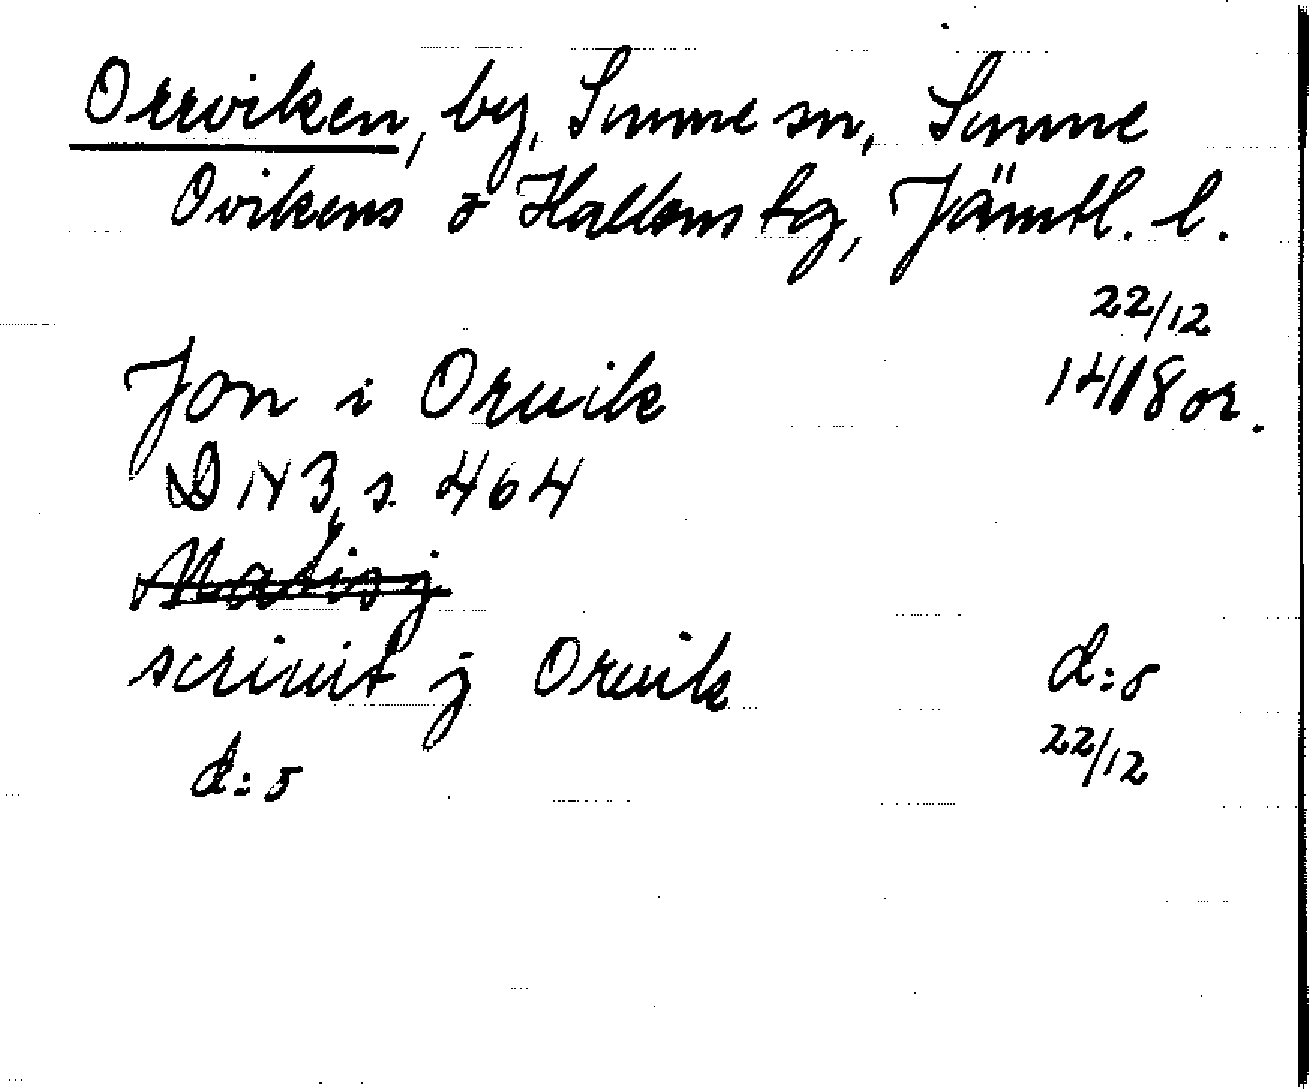 Orrviken, by, Sunne sn, Sunne
Ovikens o Hallens tg, Jämtl. l.
22/12
Jon i Oruik 1418 or.
DN 3, s. 464
scriuit j Oruik d:o
d:o 22/12